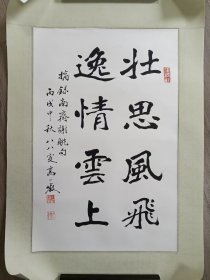 壮思風飛
逸情雲上
摘錄南齊謝朓句
丙戌中秋八八叟